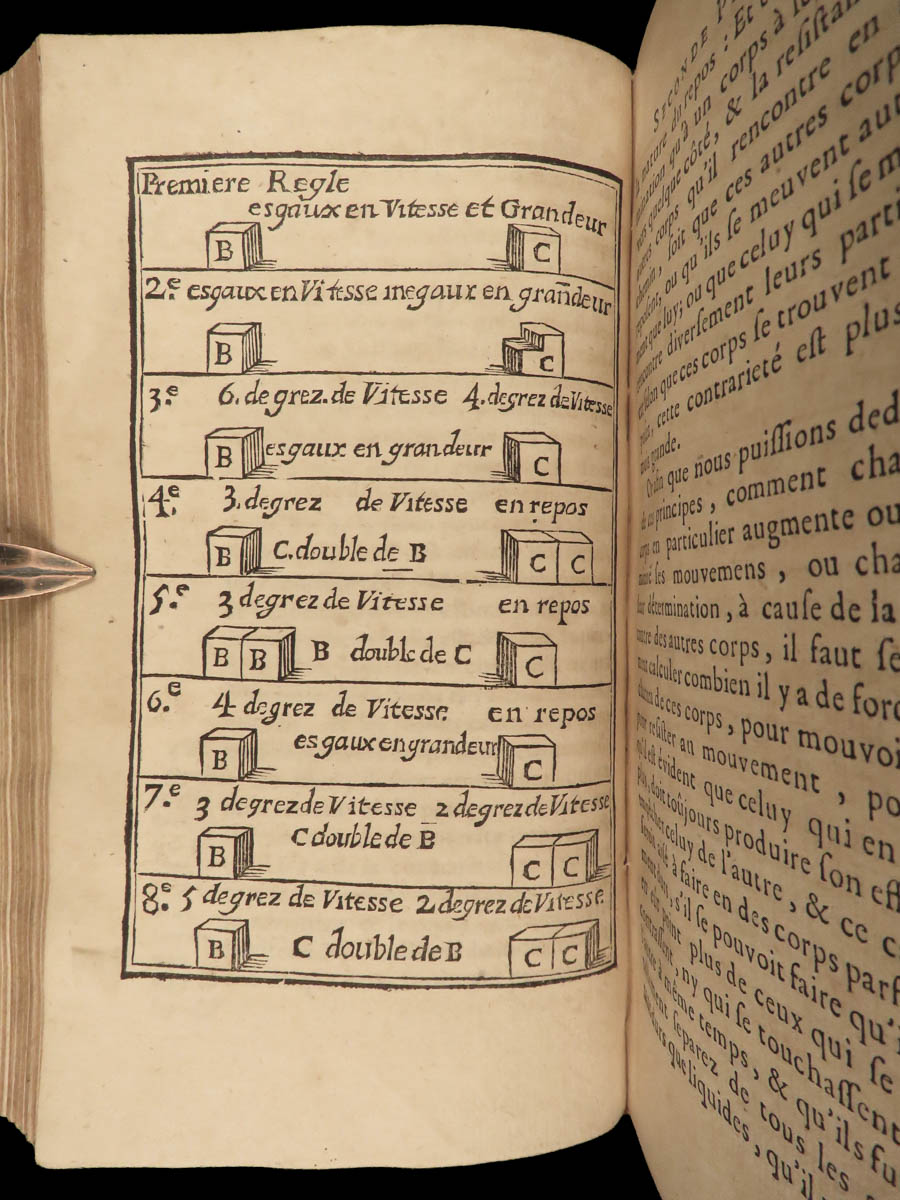 Premiere Regle
esgaux en Vitesse et Grandeur
B C
2.e esgaux en Vitesse inegaux en grandeur
B C
3.e 6. degrez. de Vitesse 4. degrez de Vitesse
B esgaux en grandeur C
4.e 3. degrez de Vitesse en repos
B C. double de B C C
5.e 3 degrez de Vitesse en repos
B B B double de C C
6.e 4 degrez de Vitesse en repos
B esgaux en grandeur C
7.e 3 degrez de Vitesse 2 degrez de Vitesse
B C double de B C C
8.e 5 degrez de Vitesse 2 degrez de Vitesse
B C double de B C C
SECONDE
nature du repos : Et
qu'à un corps à
quelque côté, & la reſiſtan
corps qu'il rencontre en
chemin, ſoit que ces autres corp
ou qu'ils ſe meuvent aut
que luy; ou que celuy qui ſe m
diverſement leurs parti
ſelon que ces corps ſe trouvent
cette contrarieté eſt plus
grande.
que nous puiſſions ded
principes, comment cha
en particulier augmente ou
ſes mouvemens, ou cha
détermination, à cauſe de la
des autres corps, il faut ſe
calculer combien il y a de forc
de ces corps, pour mouvoi
reſiſter au mouvement, po
évident que celuy qui en
doit toûjours produire ſon eff
celuy de l'autre, & ce c
à faire en des corps parf
s'il ſe pouvoit faire qu'i
plus de ceux qui ſe
ny qui ſe touchaſſent
même temps, & qu'ils fu
ſeparez de tous les
que liquides, qu'il